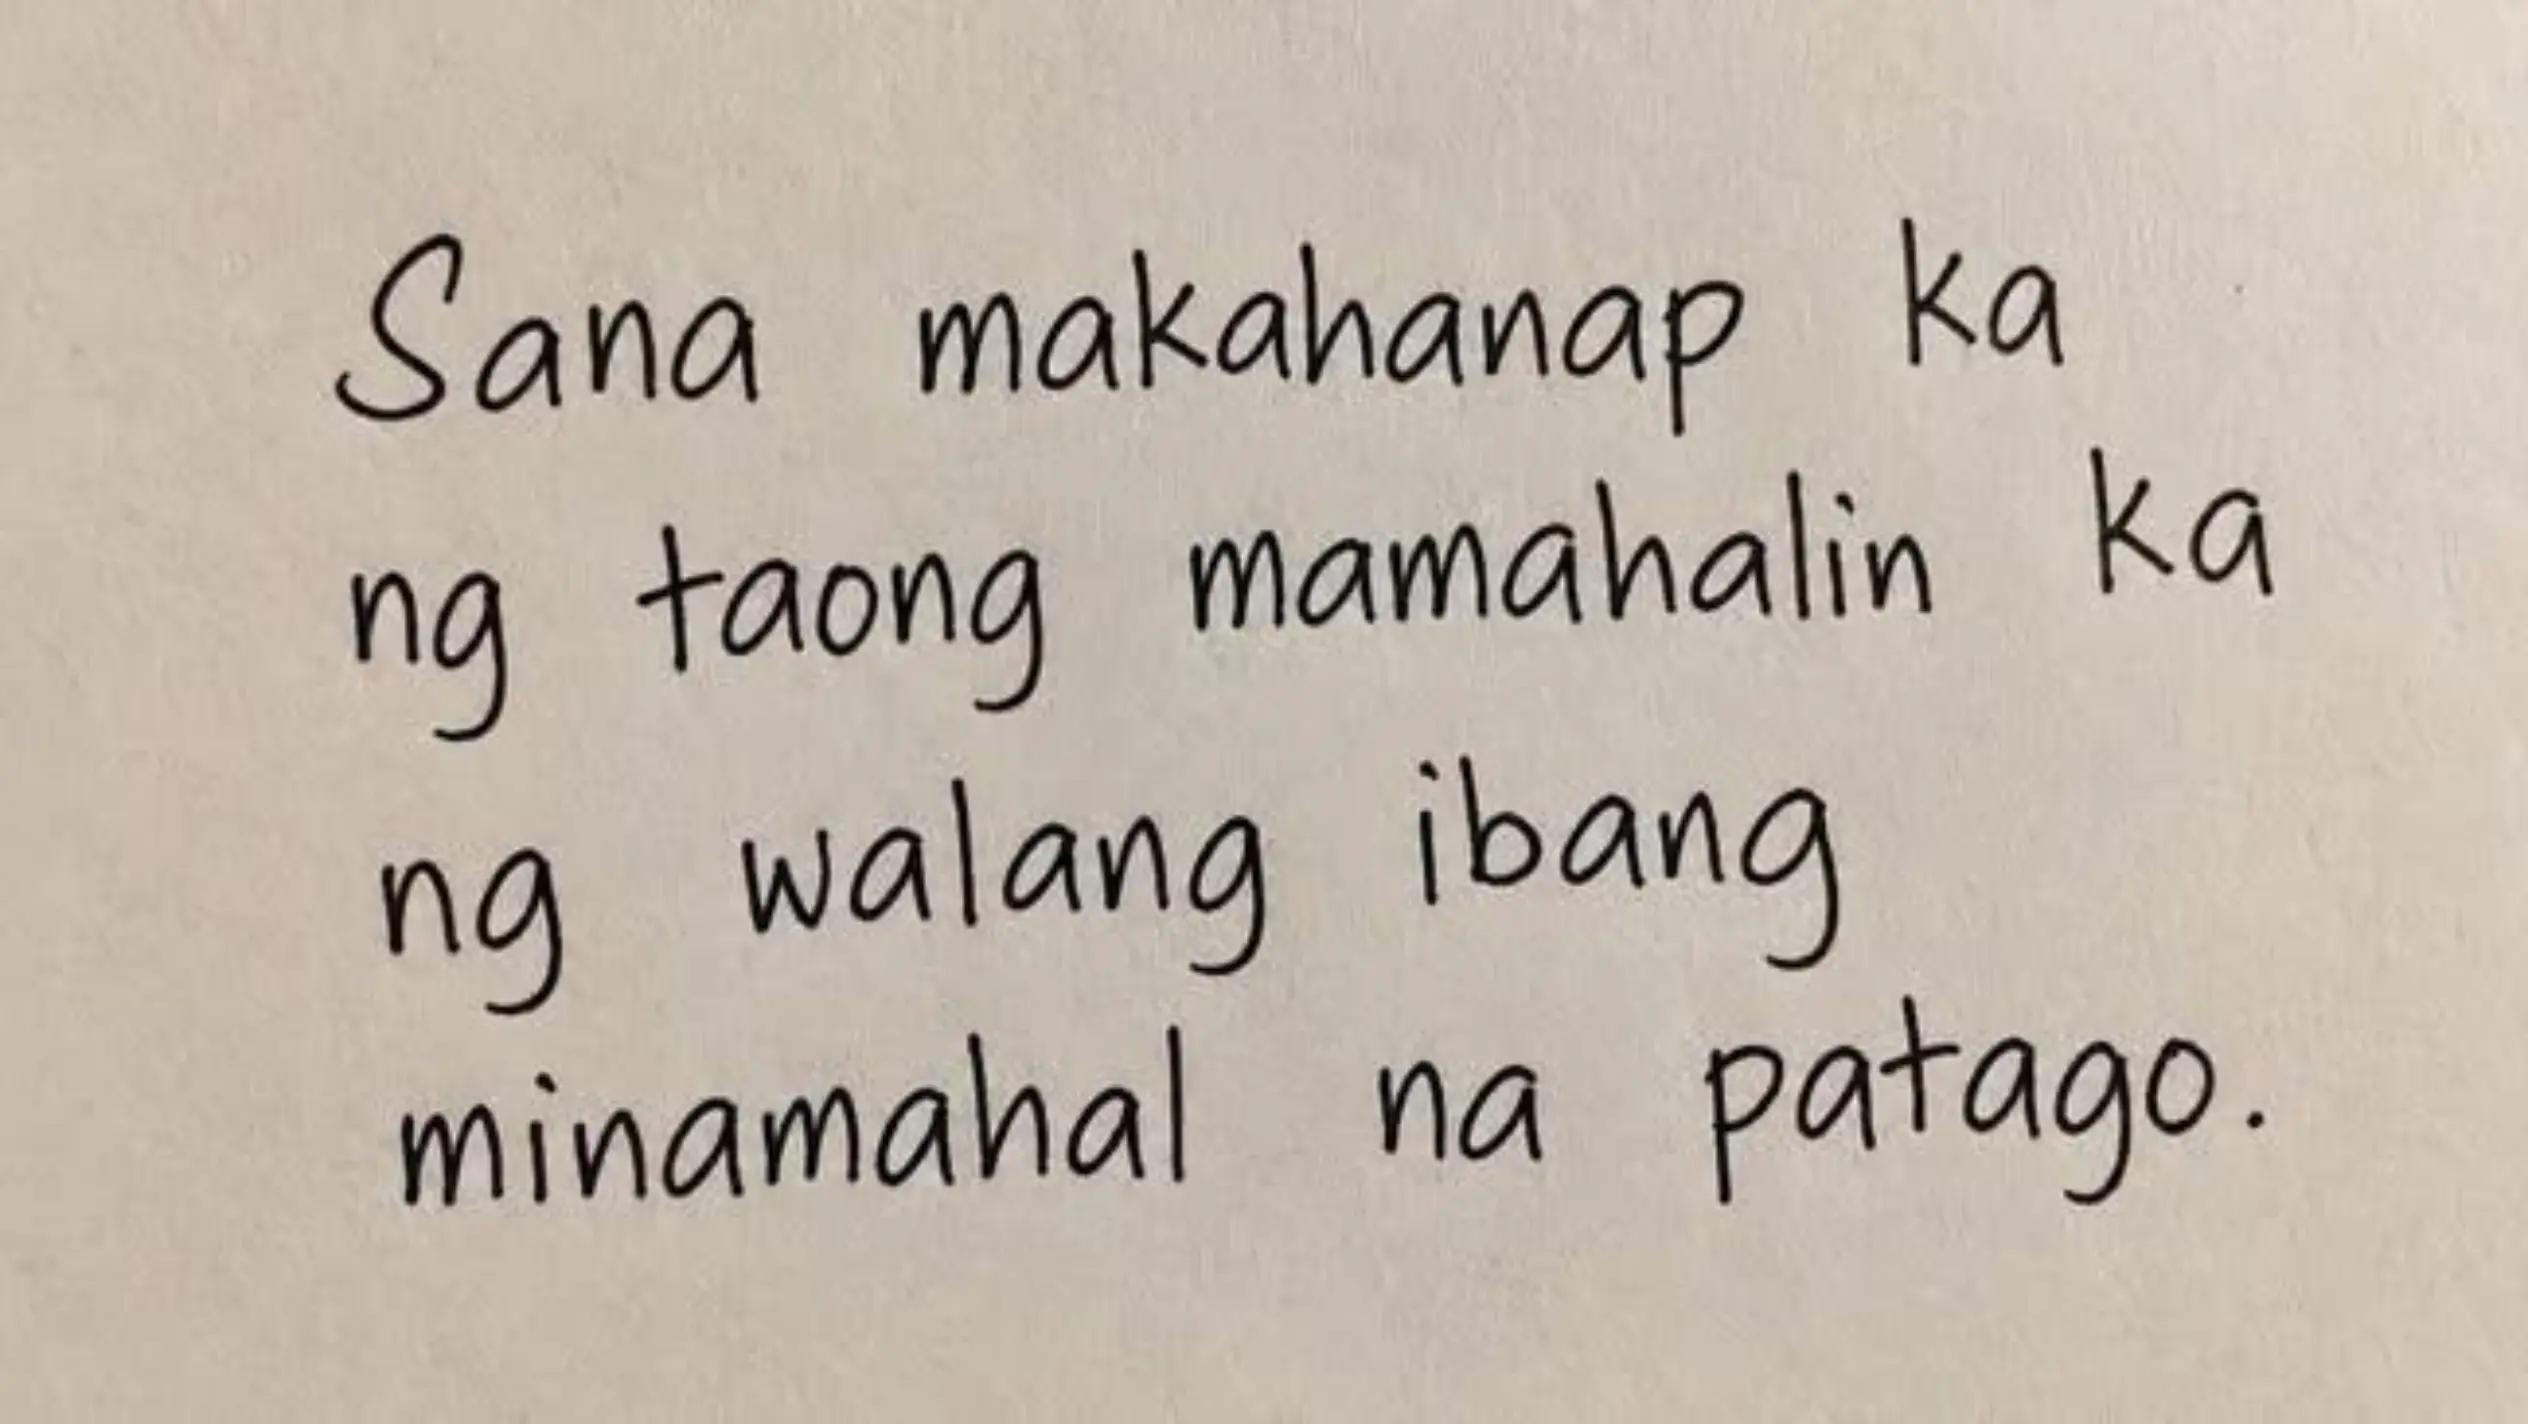 Sana makahanap ka
ng taong mamahalin ka
ng walang ibang
minamahal na patago.